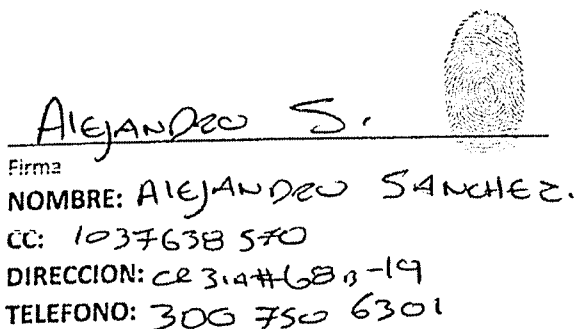 Alejandro S.
Firma
NOMBRE: Alejandro Sanchez.
CC: 1037638570
DIRECCION: CR 31A#68B-19
TELEFONO: 300 750 6301